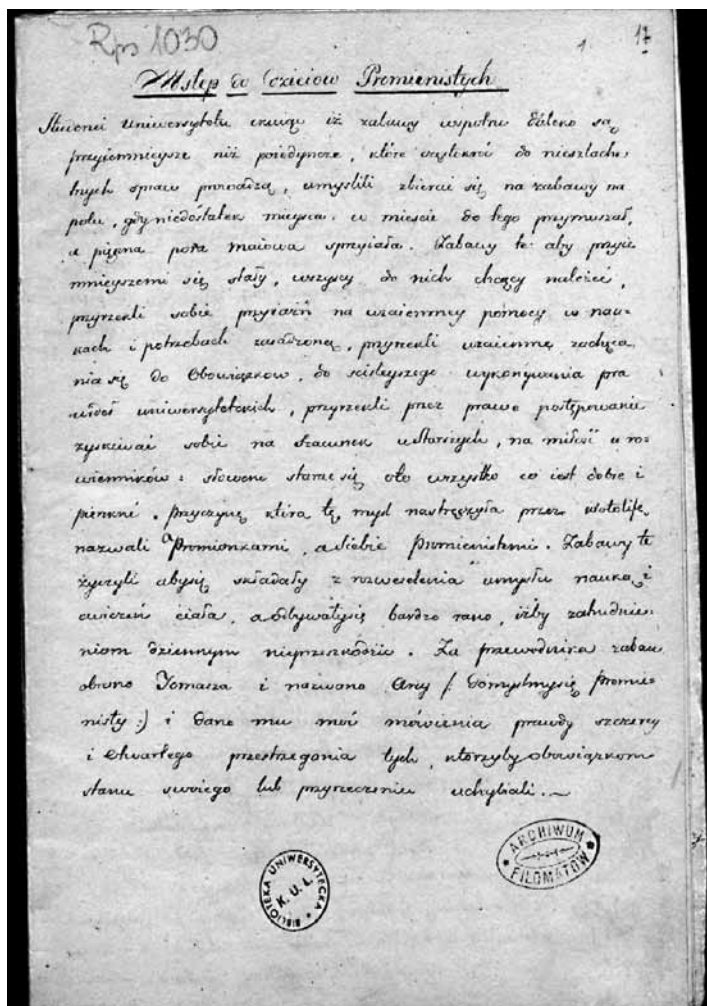 Rps 1030
1. 17
Wstęp do Dziejów Promienistych
Studenci Uniwersytetu czując iż zabawy wspólne daleko są
przyiemnieysze niż poiedyncze, które częstokroć do nieszlache-
tnych spraw prowadzą, umyslili zbierać się na zabawy na
polu, gdy niedostatek mieysca w miescie do tego przymuszał,
a piękna pora maiowa sprzyiała. Zabawy te aby przyie
mnieyszemi się stały, wszyscy do nich chcący należeć,
przyrzekli sobie przyiaźń na wzaiemney pomocy w nau-
kach i potrzebach zasadzoną, przyrzekli wzaiemne zachęca
nia się do Obowiązków, do scisleyszego wykonywania pra
wideł uniwersytetskich, przyrzekli przez prawe postępowanie
zyskiwać sobie na szacunek u starszych, na miłość u ró
wienników: słowem starać się oto wszystko co iest dobre i
piękne. Przyczynę która tę mysl nastręczyła przez
nazwali Promionkami, a siebie Promienistemi. Zabawy te
życzyli abysię składały z rozweselenia umysłu nauką i
cwiczeń ciała, a odbywałysię bardzo rano, iżby zatrudnie-
niom dziennym nieprzeszkodzić. Za przewodnika zabaw
obrano Tomasza i nazwano Arcy /: domyslmysię Promie
nisty :/ i dano mu moc mówienia prawdy szczerey
i otwartego przestrzegania tych, którzyby obowiązkom
stanu swoiego lub przyrzeczeniu uchybiali. ~
BIBLIOTEKA UNIWERSYTECKA
K. U. L.
ARCHIWUM
FILOMATÓW